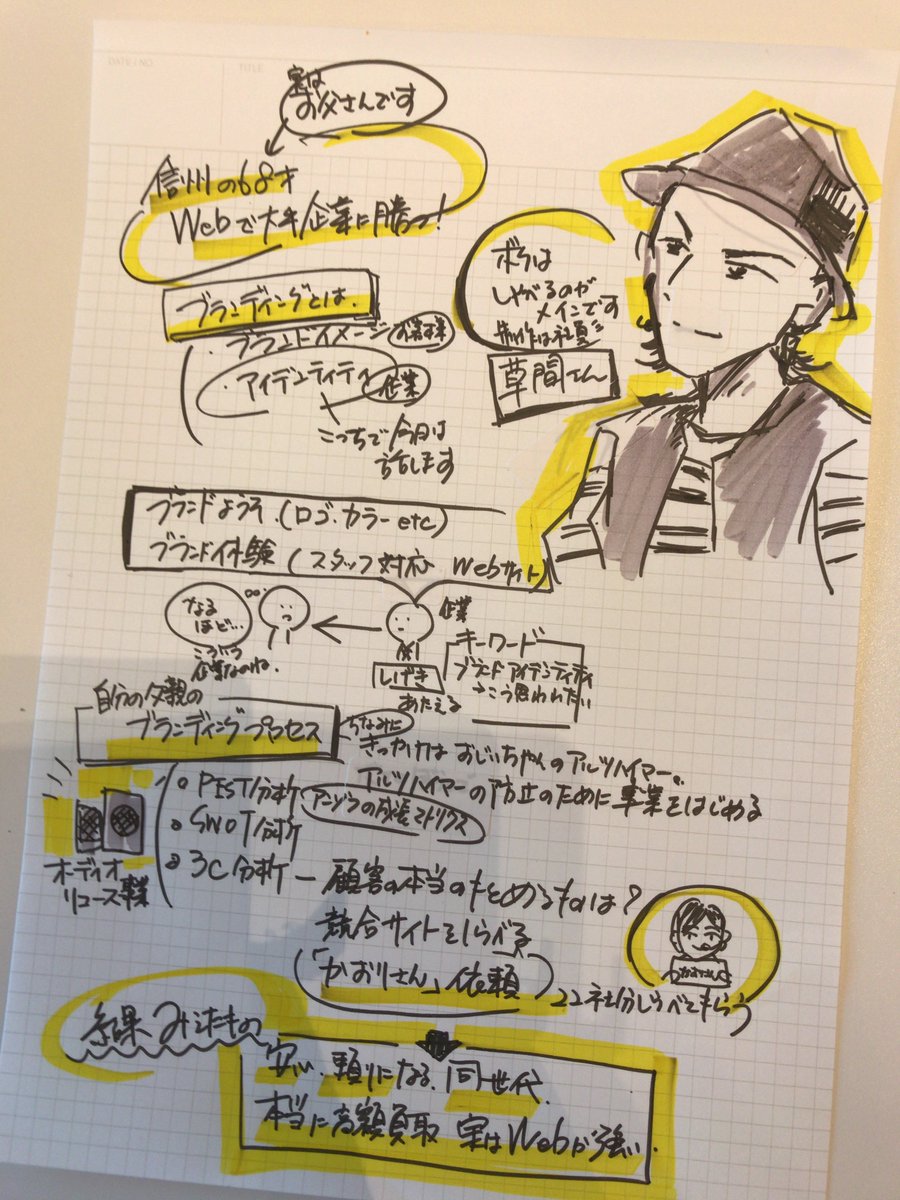 DATE / NO.
TITLE
実は
お父さんです
信州の68才
Webで大手企業に勝つ!
ブランディングとは、
・ブランドイメージ お客様
・アイデンティティ 企業
こっちで今日は
話します
ボクは
しゃべるのが
メインです
制作は社員
草間さん
ブランドようそ(ロゴ・カラー etc)
ブランド体験(スタッフ対応 Webサイト)
なる
ほど…
こういう
企業なのね。
企業
しげき
あたえる
キーワード
ブランドアイデンティティ
→こう思われたい
自分の父親の
ブランディングプロセス
ちなみに
きっかけは おじいちゃんのアルツハイマー。
アルツハイマーの防止のために事業をはじめる
PEST分析
アンゾフの成長マトリクス
SWOT分析
3C分析 ー 顧客の本当のもとめるものは?
オーディオ
リユース事業
競合サイトをしらべる
「かおりさん」依頼
22社分しらべてもらう
かおりさん
結果 みえたもの
安心、頼りになる、同世代、
本当に高額買取 実はWebが強い、